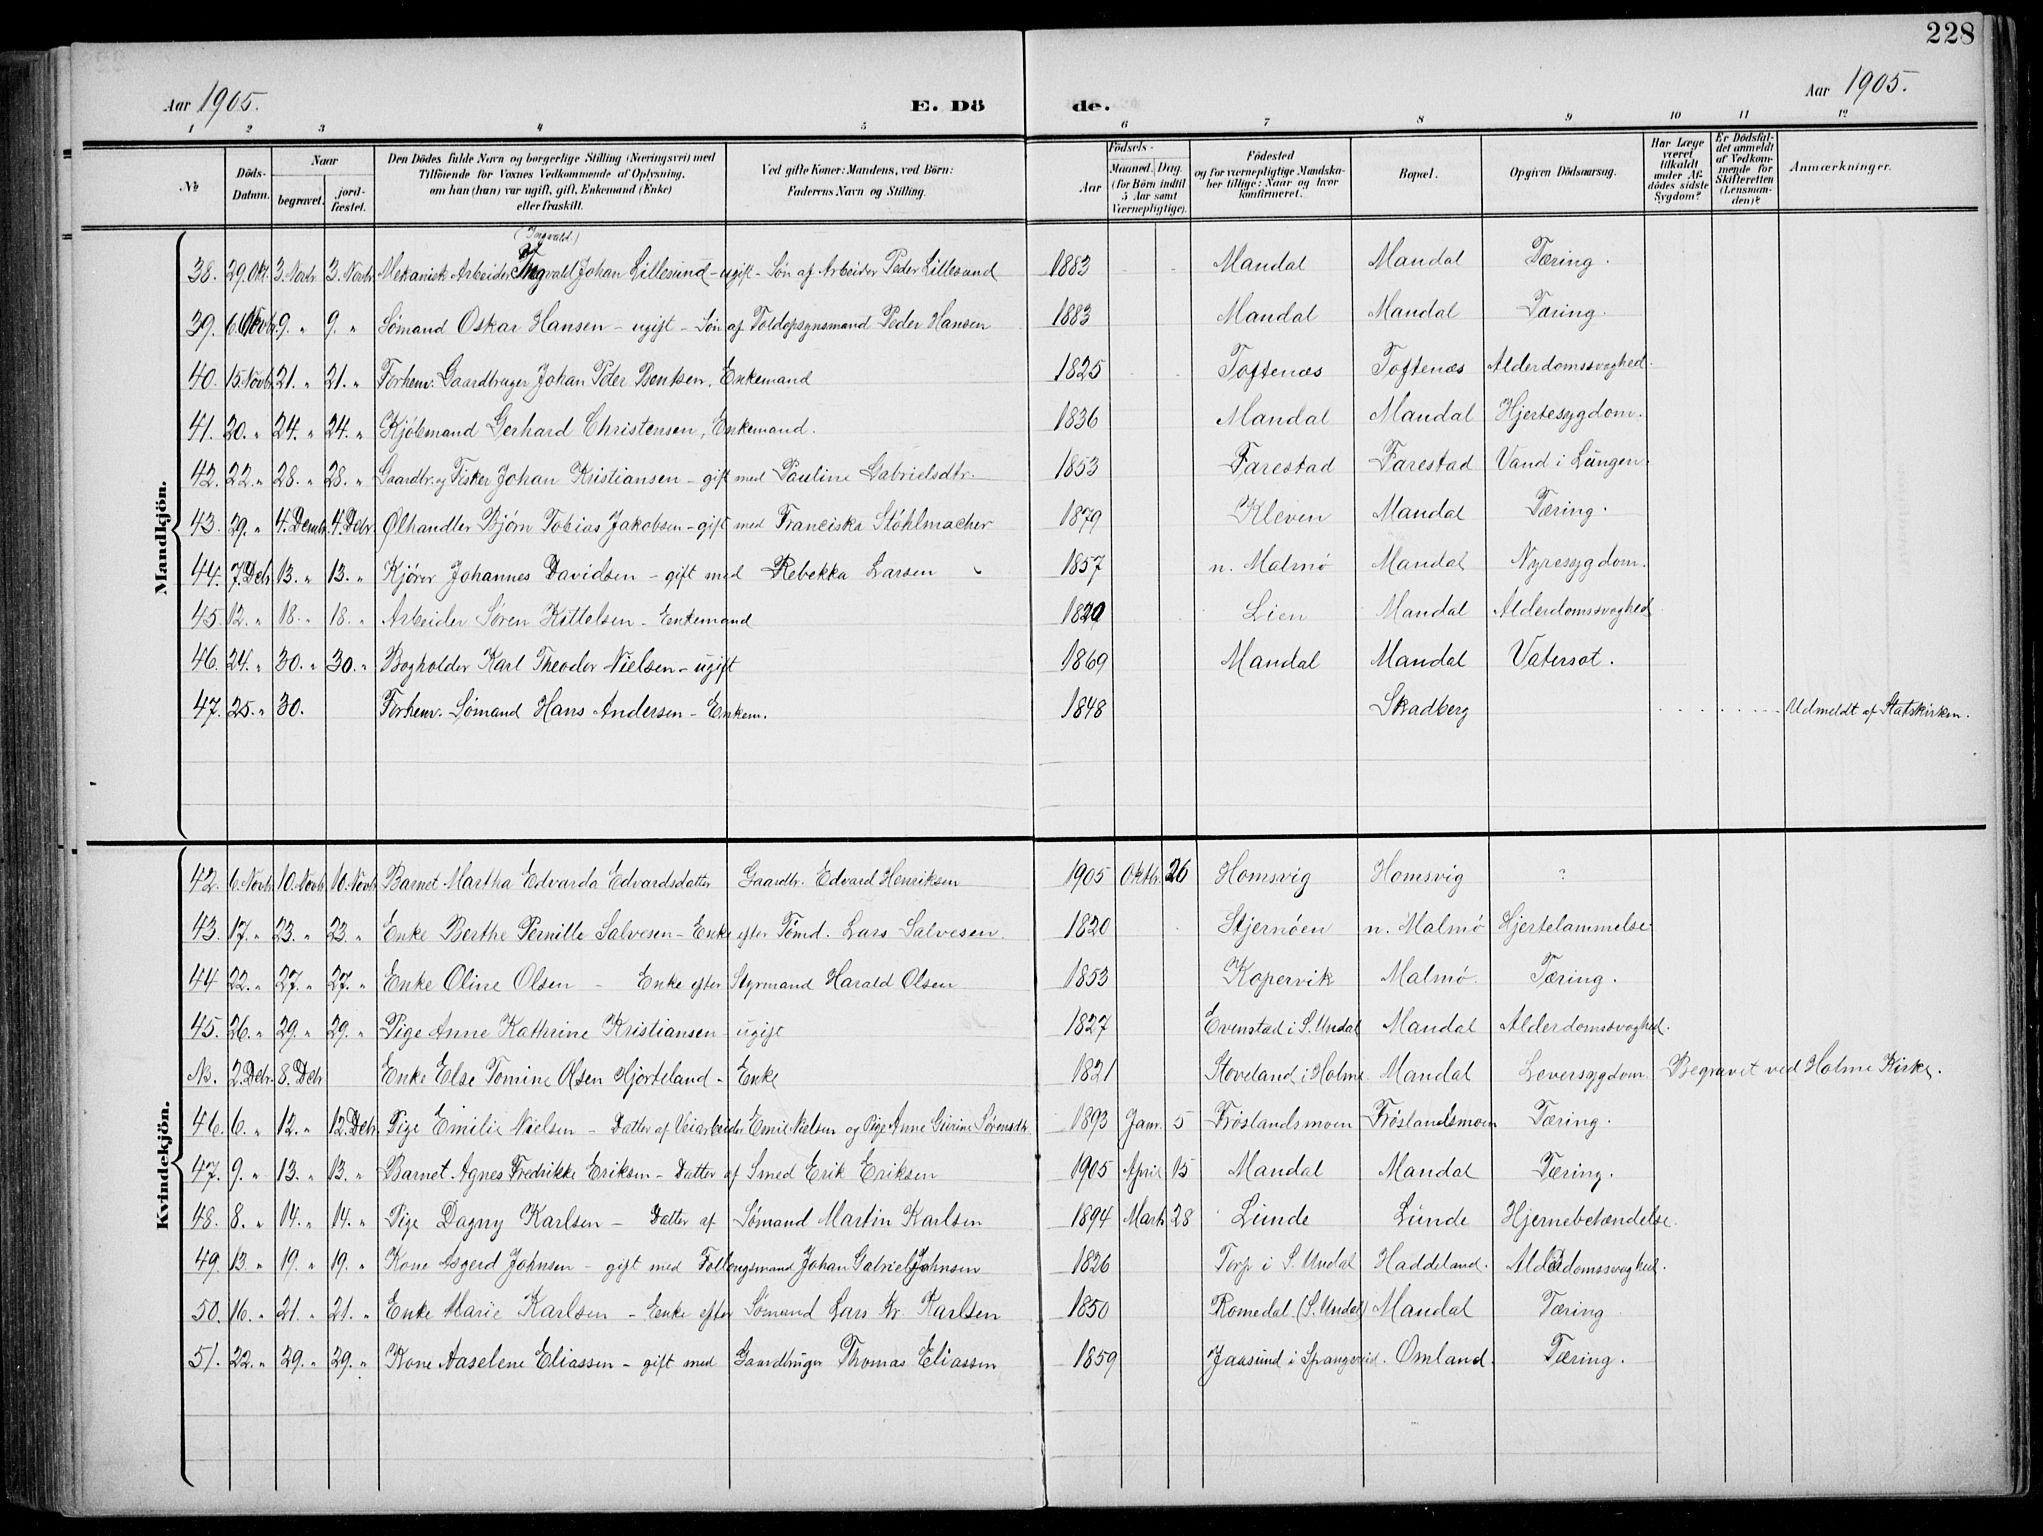 228
Aar 1905. E. Dö de. Aar 1905.
1 2 3 4 5 6 7 8 9 10 11 12
№ Döds-Datum. Naar begravet. jord-fæstet. Den Dödes fulde Navn og borgerlige Stilling (Næringsvei) med Tilföiende for Voxnes Vedkommende af Oplysning, om han (hun) var ugift, gift, Enkemand (Enke) eller fraskilt. Ved gifte Koner: Mandens, ved Börn: Faderens Navn og Stilling. Födsels- Aar Maaned. Dag. (for Börn indtil 5 Aar samt Værnepligtige). Födested og for værnepligtige Mandskaber tillige: Naar og hvor konfirmeret. Bopæl. Opgiven Dödsaarsag. Har Læge været tilkaldt under Afdödes sidste Sygdom? Er Dödsfaldet anmeldt af Vedkommende for Skifteretten (Lensmanden)? Anmærkninger.
Mandkjön.
(Ingvald)
38. 29. Okt. 3. Novbr 3. Novbr Mekanisk Arbeider Johan Lillesund - ugift - Søn af Arbeider Peder Lillesund 1883 Mandal Mandal Tæring.
39. 6. Novb. 9. " 9. " Sømand Oskar Hansen - ugift - Søn af Toldopsynsmand Peder Hansen 1883 Mandal Mandal Tæring.
40. 15. Novb. 21. " 21. " Forhenv. Gaardbruger Johan Peter Bentsen, Enkemand 1825 Toftenæs Toftenæs Alderdomssvaghed.
41. 20. " 24. " 24. " Kjøbmand Gerhard Christensen, Enkemand. 1836 Mandal Mandal Hjertesygdom.
42. 22. " 28. " 28. " Gaardbr. og Fisker Johan Kristiansen - gift med Pauline Gabrielsdtr. 1853 Farestad Farestad Vand i Lungen.
43. 29. " 4. Decmbr. 4. Debr. Ølhandler Bjørn Tobias Jakobsen - gift med Franciska Støhlmacher 1879 Kleven Mandal Tæring.
44. 7. Debr 13. " 13. " Kjører Johannes Davidsen - gift med Rebekka Larsen 1857 n. Malmø Mandal Nyresygdom.
45. 12. " 18. " 18. " Arbeider Søren Kittelsen - Enkemand 1820 Lien Mandal Alderdomssvaghed
46. 24. " 30. " 30. " Bogholder Karl Theodor Nielsen - ugift 1869 Mandal Mandal Vatersot.
47. 25. " 30. Forhenv. Sømand Hans Andersen - Enkem. 1848 Skadberg Udmeldt af Statskirken.
Kvindekjön.
42. 6. Novb. 10. Novb 10. Novb Barnet Martha Edvarda Edvardsdatter Gaardbr. Edvard Henriksen 1905 Oktbr. 26 Homsvig Homsvig ?
43. 17. " 23. " 23. " Enke Berthe Pernille Salvesen - Enke efter Tømd. Lars Salvesen. 1820 Stjernøen n. Malmø Hjertelammelse
44 22. " 27. " 27. " Enke Oline Olsen - Enke efter Styrmand Harald Olsen 1853 Kopervik Malmø. Tæring.
45. 26. " 29. " 29. " Pige Anne Kathrine Kristiansen - ugift 1827 Evenstad i S. Undal Mandal Alderdomssvaghed.
N. 2. Debr. 8. Debr Enke Else Tomine Olsen Hjorteland - Enke 1821 Stoveland i Holme Mandal Leversygdom. Begravet ved Holme Kirke.
46. 6. " 12. " 12. Debr. Pige Emilie Nielsen - Datter af Veiarbeider Emil Nielsen og Pige Anne Gurine Sørensdtr. 1893 Janr. 5 Frøslandsmoen Frøslandsmoen Tæring.
47. 9. " 13. " 13. " Barnet Agnes Fredrikke Eriksen - Datter af Smed Erik Eriksen 1905 April 15 Mandal Mandal Tæring.
48. 8. " 14. " 14. " Pige Dagny Karlsen - Datter af Sømand Martin Karlsen 1894 Marts 28 Lunde Lunde Hjernebetændelse.
49. 13. " 19. " 19. " Kone Asgerd Johnsen - gift med Johan Gabriel Johnsen 1826 Torp i S. Undal Haddeland. Alderdomssvaghed.
50. 16. " 21. " 21. " Enke Marie Karlsen - Enke efter Sømand Lars Kr. Karlsen 1850 Romedal (S. Undal) Mandal Tæring
51. 22. " 29. " 29. " Kone Aaselene Eliassen - gift med Gaardbruger Thomas Eliassen 1859 Jaasund i Spangereid. Omland. Tæring.